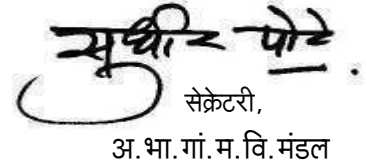 सुधीर पोटे.
सेक्रेटरी,
अ.भा.गां.म.वि.मंडल